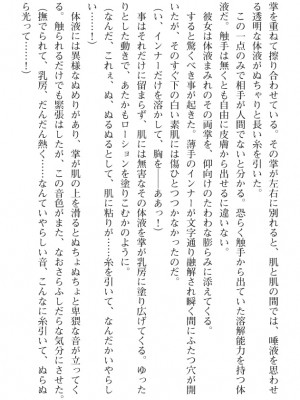 掌を重ねて擦り合わせている。その掌が左右に別れると、肌と肌の間では、唾液を思わせ
る透明な体液がぬちゃりと長い糸を引いた。
　この一点のみで相手が人間でないと分かる。恐らく触手から出ていた溶解能力を持つ体
液だ。触手は無くとも自由に皮膚から出せるに違いない。
　彼女は体液に濡れたその両の掌を、仰向けのたわわな膨らみに添えてくる。
　すると驚くべき事が起きた。薄手のインナーが文字通り融解され瞬く間にふたつ穴が開
いたが、そのすぐ下の白い素肌には傷ひとつつかなかったのだ。
（い、インナーだけを溶かして、胸を……ああっ！）
　事はそれだけに留まらず、肌には無害なその体液を掌が乳房に塗り広げてくる。ゆった
りとした動きで、あたかもローションを塗りこむかのように。
（やだ、これぇ、ぬ、ぬるぬるとして、肌に粘りが……糸を引いて、なんだかいやらし
い……っ）
　体液には異様なぬめりがあり、掌が肌の上を滑るとぬちょぬちょと卑猥な音が立ってく
る。触られるだけでも緊張はしたが、この音色がまた、なおさらふしだらな気分にさせた。
（撫でられて、乳房、だんだん熱く……なんていやらしい音、こんなに糸引いて、ぬらぬ
ら光って……！）